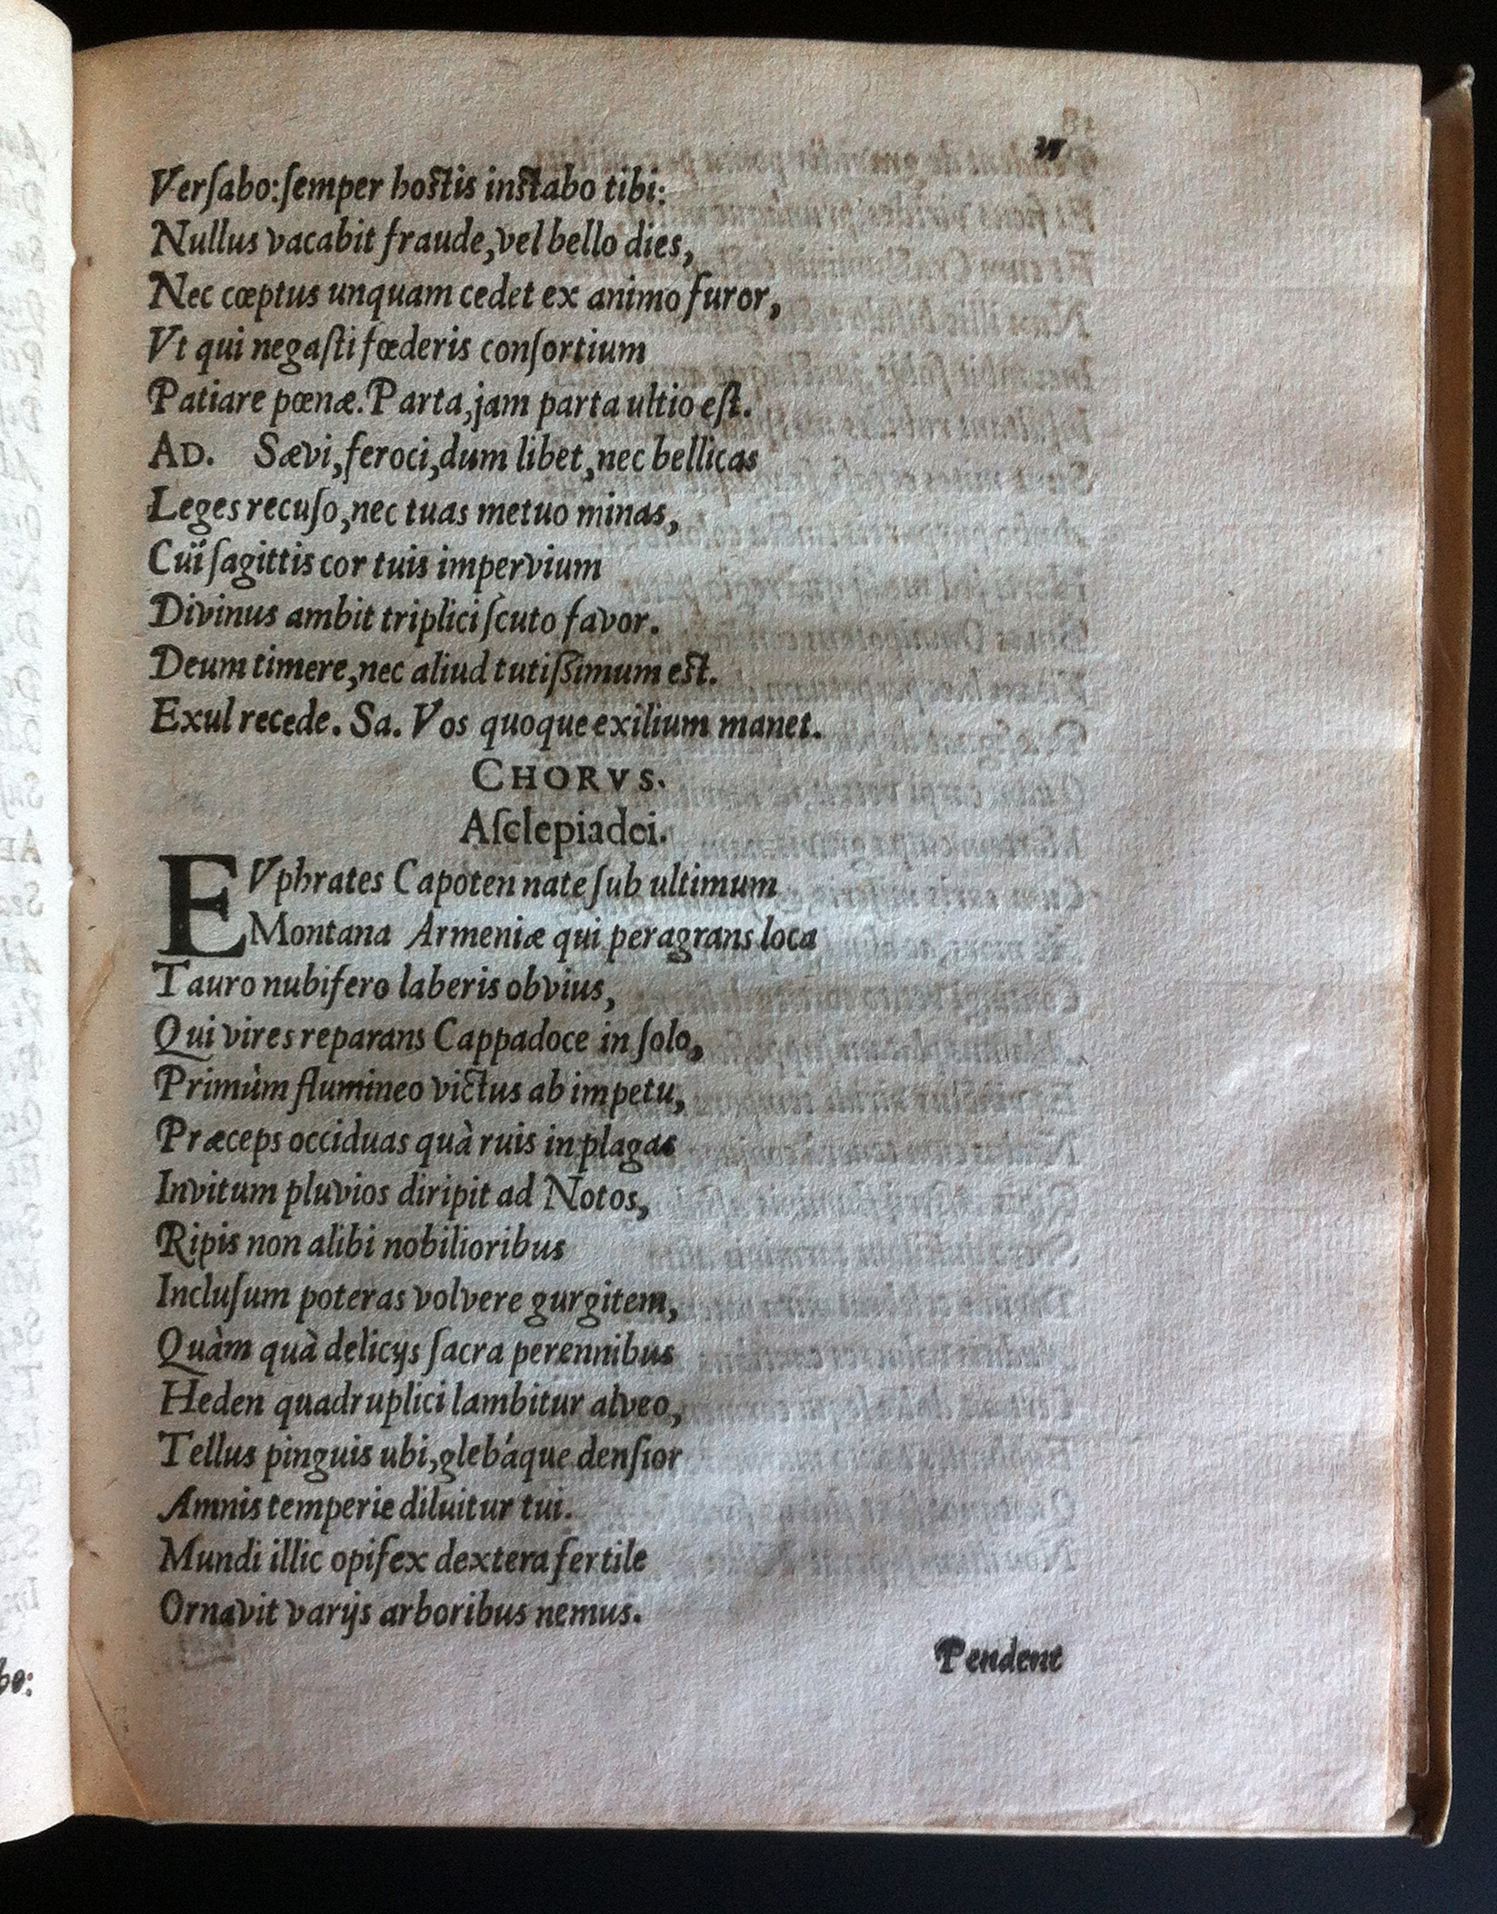 Verſabo: ſemper hostis instabo tibi:
Nullus vacabit fraude, vel bello dies,
Nec cœptus unquam cedet ex animo furor,
Vt qui negaſti fœderis conſortium
Patiare pœnæ. Parta, jam parta ultio eſt.
AD. Sævi, feroci, dum libet, nec bellicas
Leges recuſo, nec tuas metuo minas,
Cuï ſagittis cor tuis impervium
Divinus ambit triplici ſcuto favor.
Deum timere, nec aliud tutiſſimum est.
Exul recede. Sa. Vos quoque exilium manet.
CHORVS.
Aſclepiadei.
EVphrates Capoten nate ſub ultimum
Montana Armeniæ qui peragrans loca
Tauro nubifero laberis obvius,
Qui vires reparans Cappadoce in ſolo,
Primùm flumineo victus ab impetu,
Præceps occiduas quà ruis in plagas
Invitum pluvios diripit ad Notos,
Ripis non alibi nobilioribus
Incluſum poteras volvere gurgitem,
Quàm quà delicijs ſacra perennibus
Heden quadruplici lambitur alveo,
Tellus pinguis ubi, glebáque denſior
Amnis temperie diluitur tui.
Mundi illic opifex dextera fertile
Ornavit varijs arboribus nemus.
Pendent